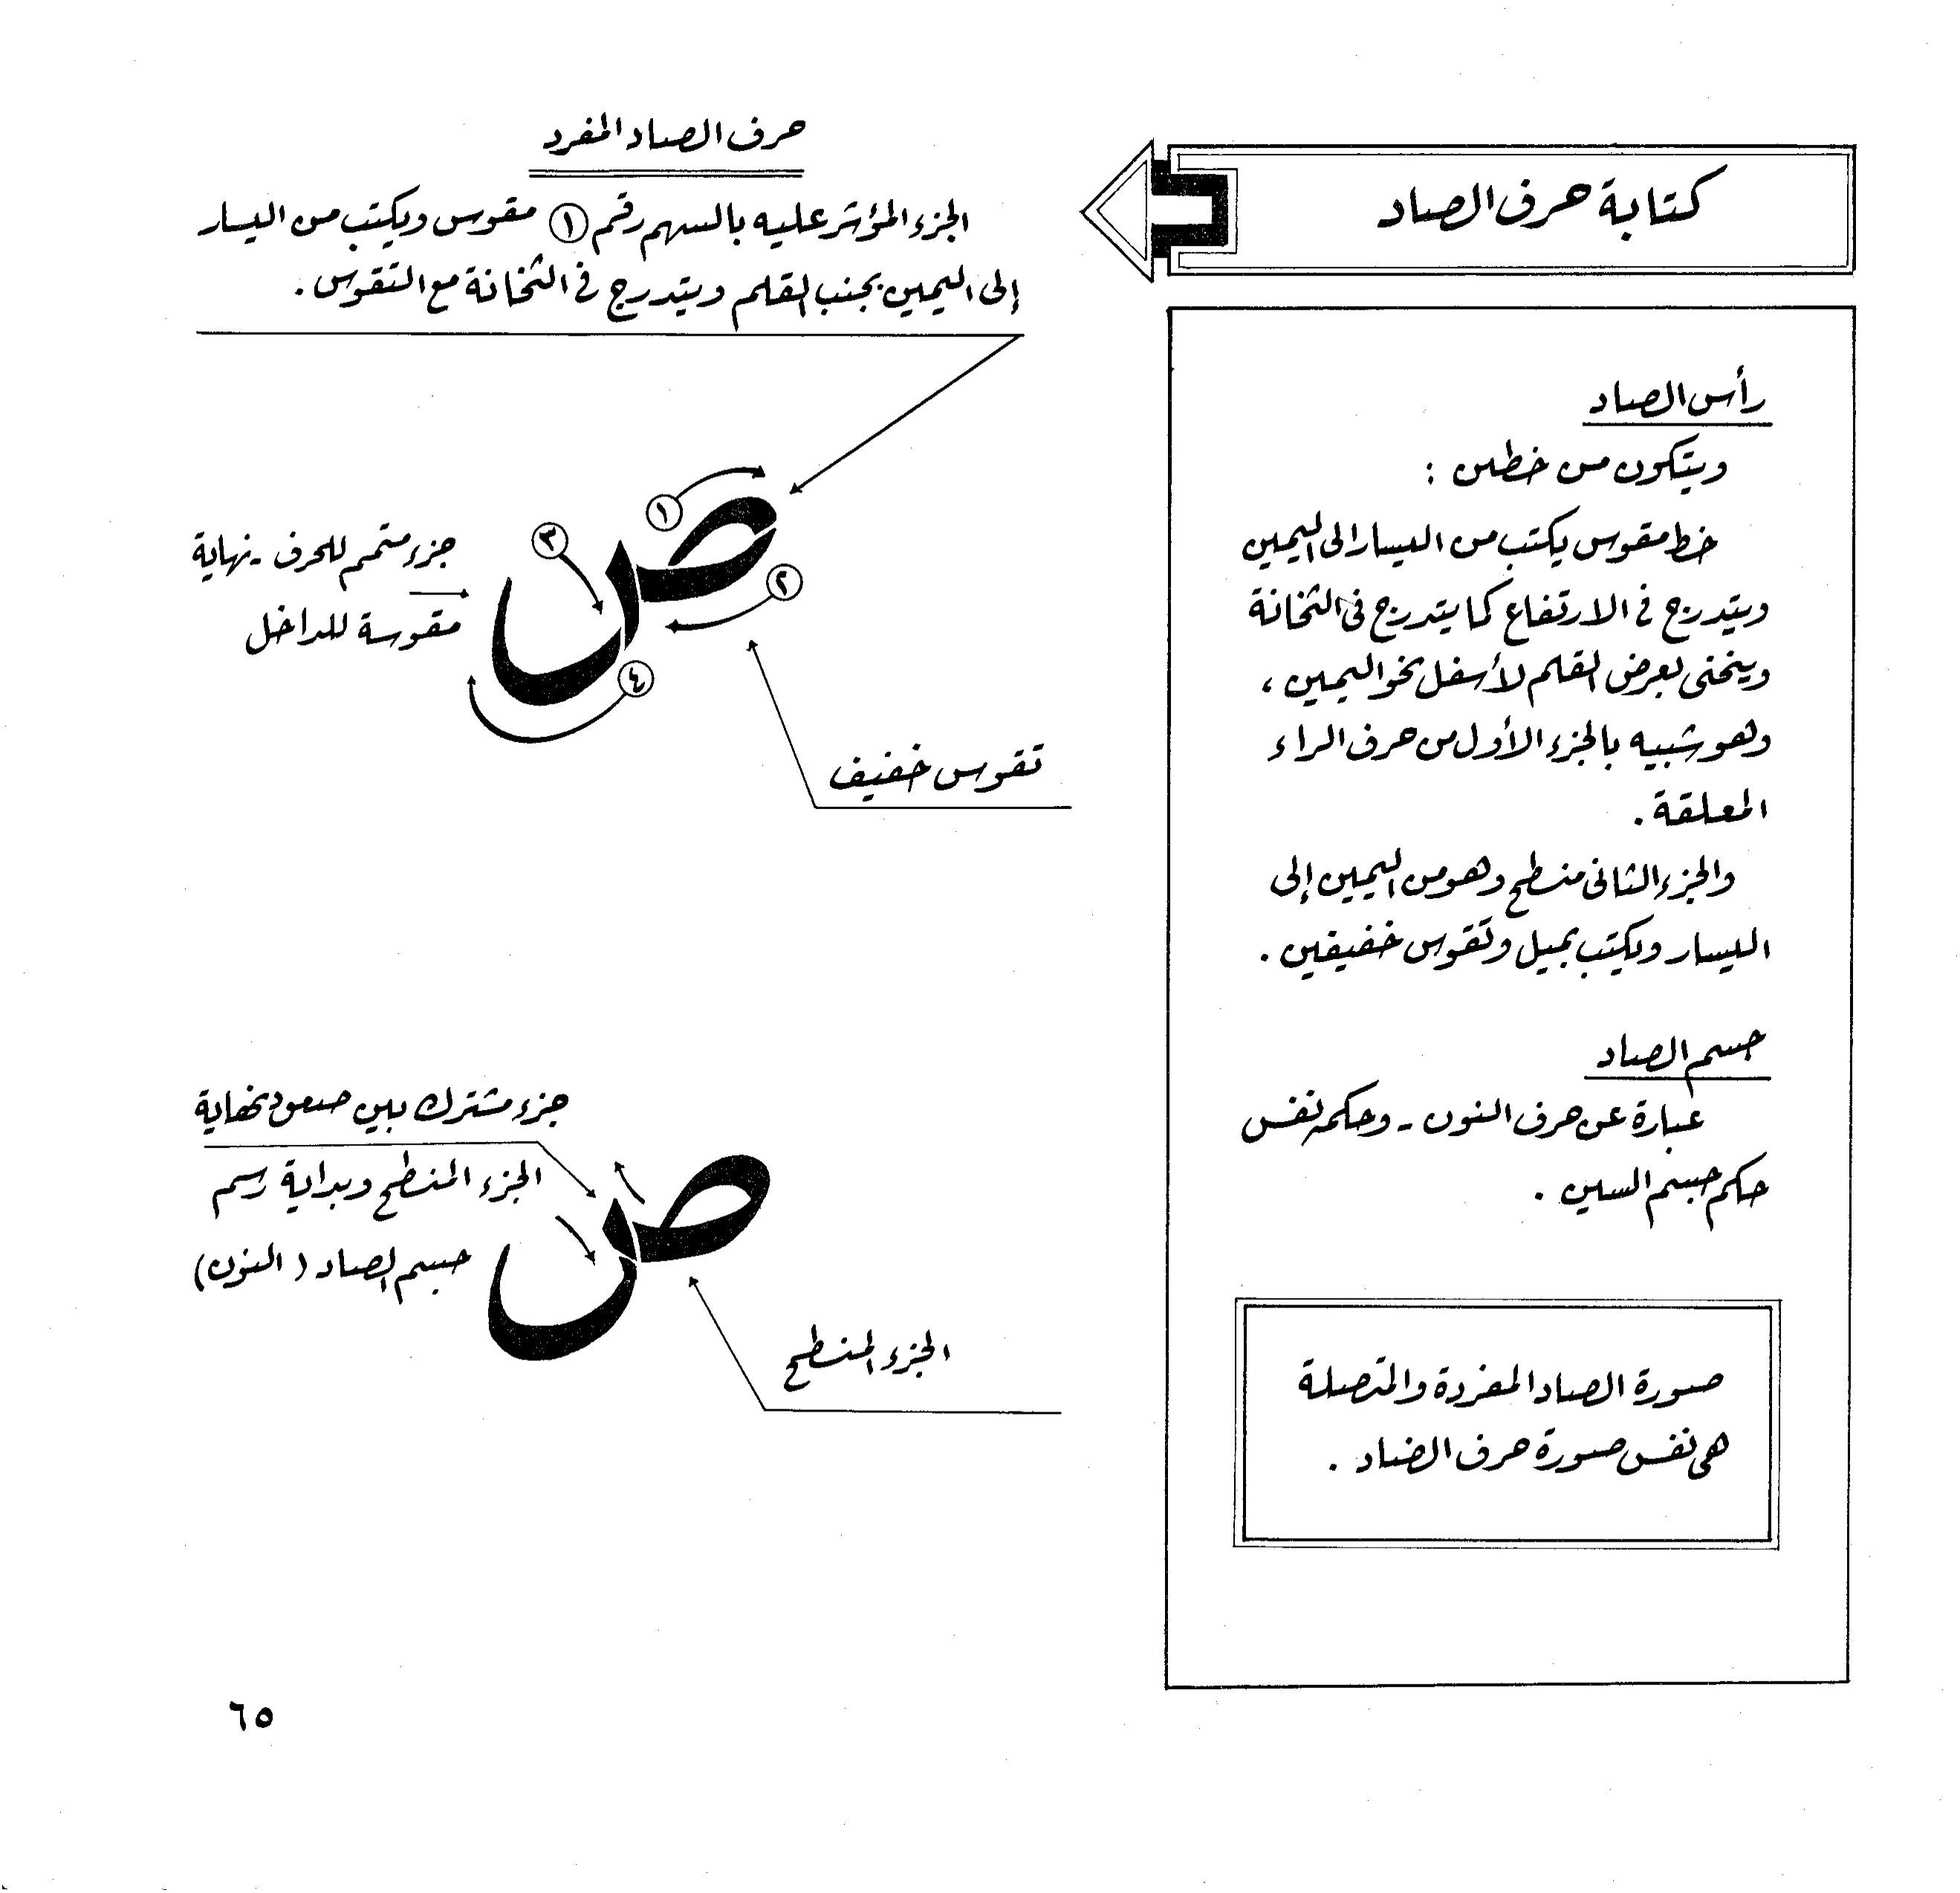 كتابة حرف الصاد
رأس الصاد
ويتكون من خطين :
خط مقوس يكتب من اليسار الى اليمين
ويتدرج في الارتفاع كما يتدرج في الثخانة
وينحنى بعرض القلم لأسفل نحو اليمين ،
وهو شبيه بالجزء الأول من حرف الراء
المعلقة .
والجزء الثانى منسطح وهو من اليمين إلى
اليسار ويكتب بميل وتقوس خفيفين .
جسم الصاد
عبارة عن حرف النون - وحكمه نفس
حكم جسم السين .
صورة الصاد المفردة والمتصلة
هى نفس صورة حرف الضاد .
حرف الصاد المفرد
الجزء المؤشر عليه بالسهم رقم ١ مقوس ويكتب من اليسار
إلى اليمين بجنب القلم ويتدرج في الثخانة مع التقوس .
ص
١
٢
٣
٤
جزء متمم للحرف - نهاية
مقوسة للداخل
تقوس خفيف
جزء مشترك بين صعود نهاية
الجزء المنسطح وبداية رسم
جسم الصاد ( النون )
ص
الجزء المنسطح
٦٥